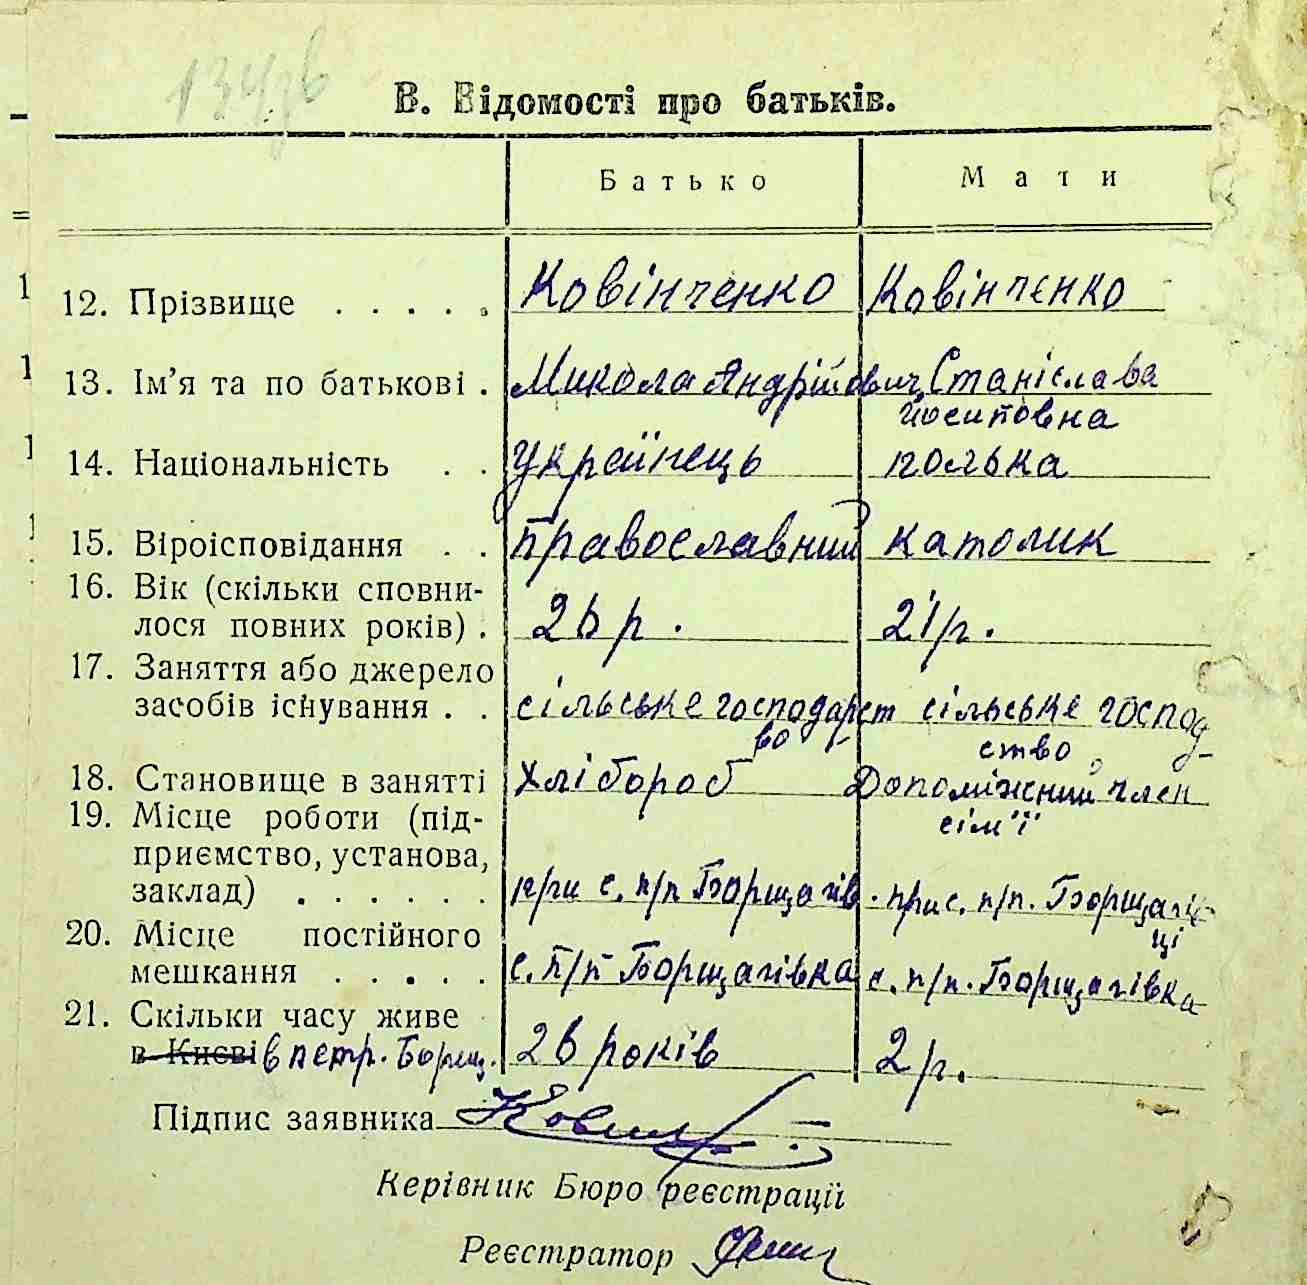 В. Відомості про батьків.
Батько Мати
12. Прізвище . . . . . Ковінченко Ковінченко
13. Ім'я та по батькові . Микола Андрійович Станіслава
Йосиповна
14. Національність . . українець полька
15. Віроісповідання . . православний католик
16. Вік (скільки сповни-
лося повних років) . 26 р. 21 р.
17. Заняття або джерело
засобів існування . . сільське господарст сільське господ
во ство
18. Становище в занятті хлібороб Допоміжний член
сім'ї
19. Місце роботи (під-
приємство, установа,
заклад) . . . . . . при с. п/п Борщагів при с. п/п. Борщагів
ці
20. Місце постійного
мешкання . . . . . с. п/п Борщагівка с. п/п. Борщагівка
21. Скільки часу живе
в Києві в петр. Борщ. 26 років 2 р.
Підпис заявника
Керівник Бюро реєстрації
Реєстратор